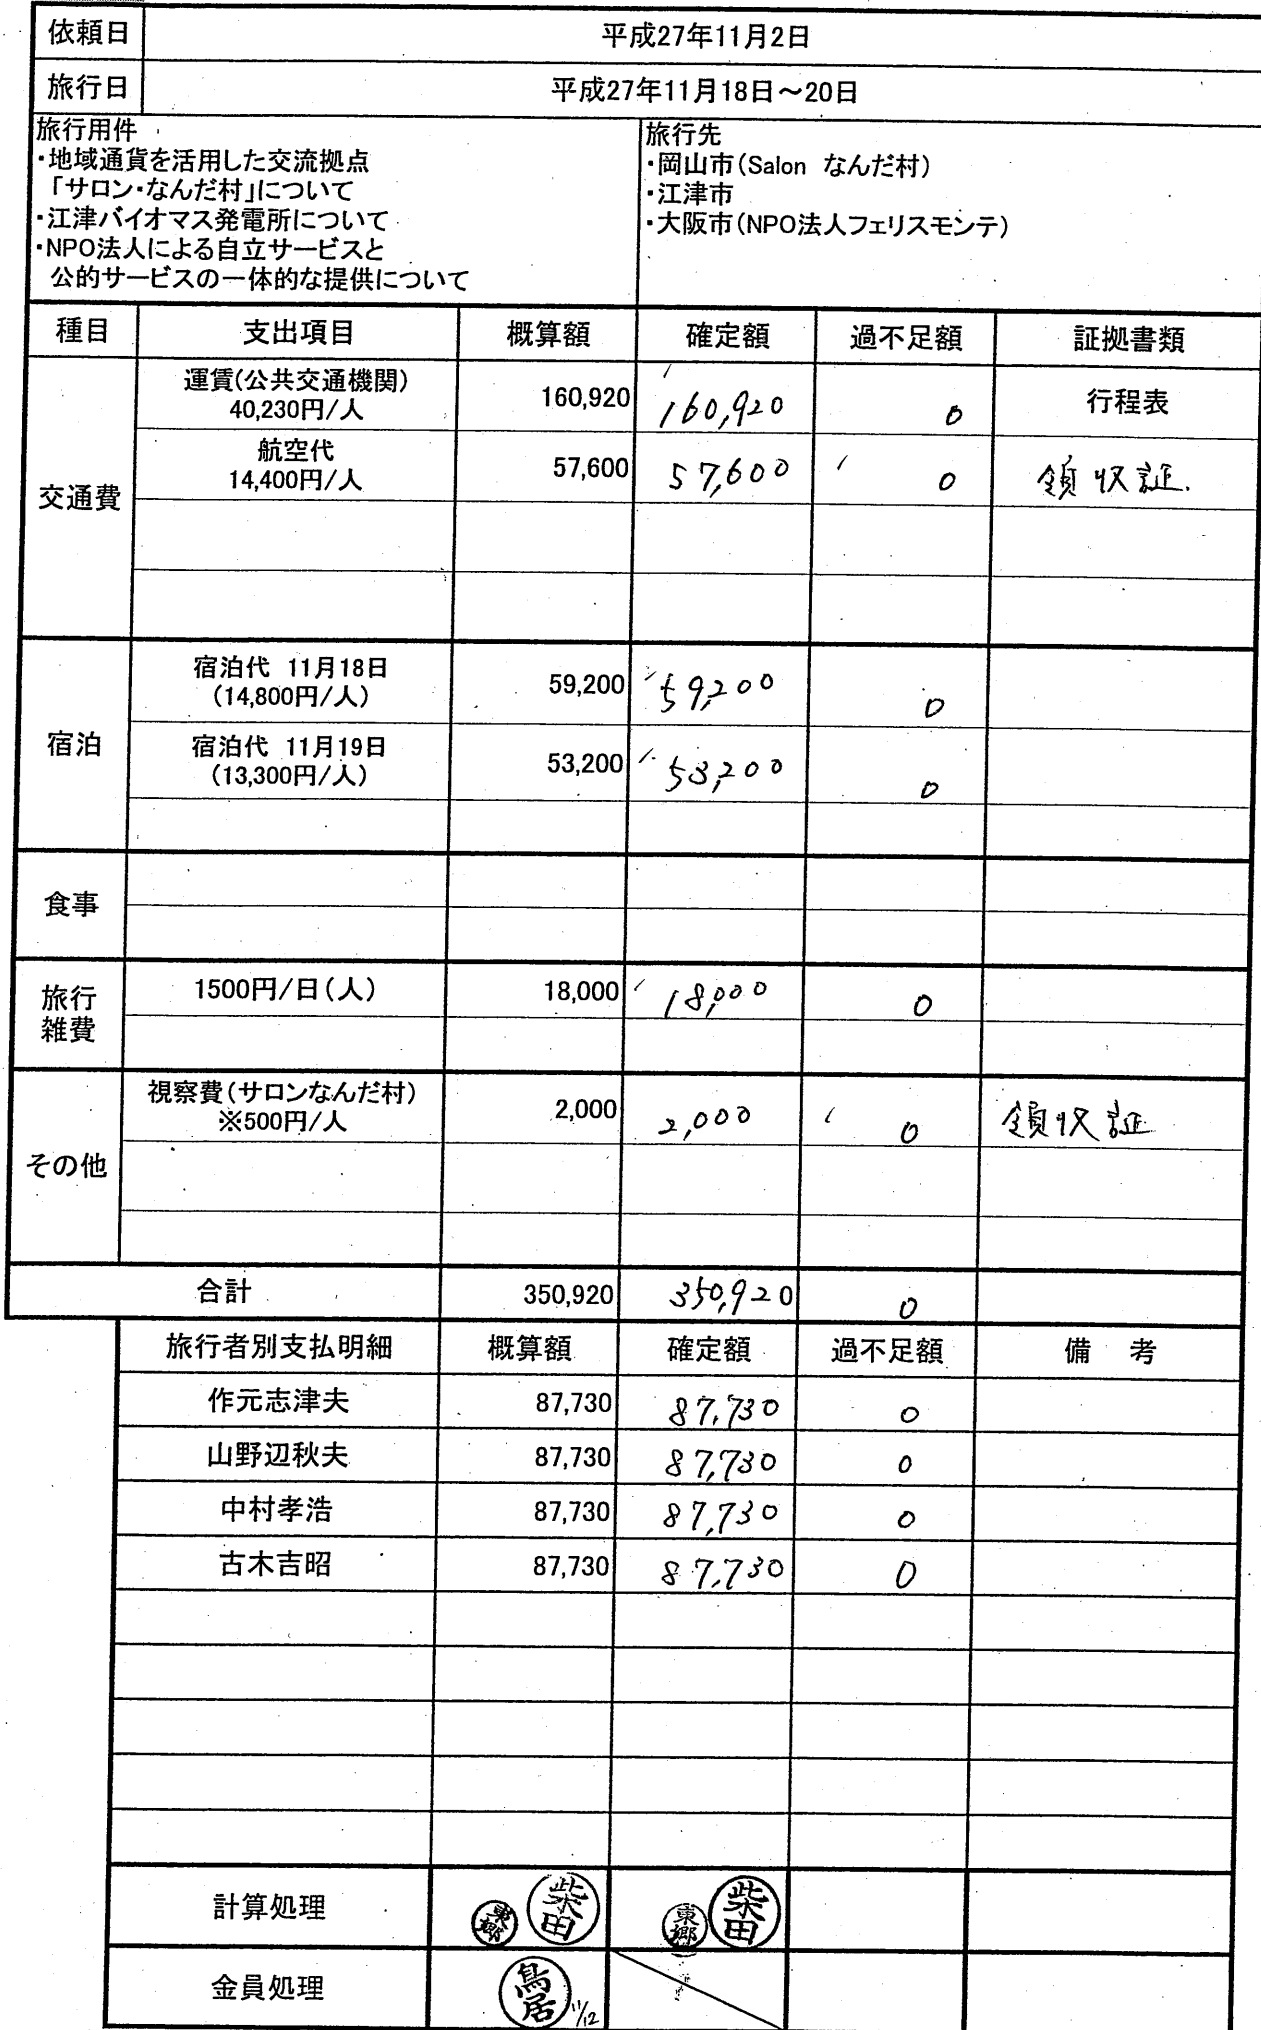 依頼日 平成27年11月2日
旅行日 平成27年11月18日～20日
旅行用件
・地域通貨を活用した交流拠点
「サロン・なんだ村」について
・江津バイオマス発電所について
・NPO法人による自立サービスと
公的サービスの一体的な提供について
旅行先
・岡山市(Salon なんだ村)
・江津市
・大阪市(NPO法人フェリスモンテ)
種目 支出項目 概算額 確定額 過不足額 証拠書類
交通費
運賃(公共交通機関)
40,230円/人 160,920 160,920 0 行程表
航空代
14,400円/人 57,600 57,600 0 領収証.
宿泊
宿泊代 11月18日
(14,800円/人) 59,200 59,200 0
宿泊代 11月19日
(13,300円/人) 53,200 53,200 0
食事
旅行
雑費
1500円/日(人) 18,000 18,000 0
その他
視察費(サロンなんだ村)
※500円/人 2,000 2,000 0 領収証
合計 350,920 350,920 0
旅行者別支払明細 概算額 確定額 過不足額 備 考
作元志津夫 87,730 87,730 0
山野辺秋夫 87,730 87,730 0
中村孝浩 87,730 87,730 0
古木吉昭 87,730 87,730 0
計算処理 東郷 柴田 東郷 柴田
金員処理 鳥居 11/12